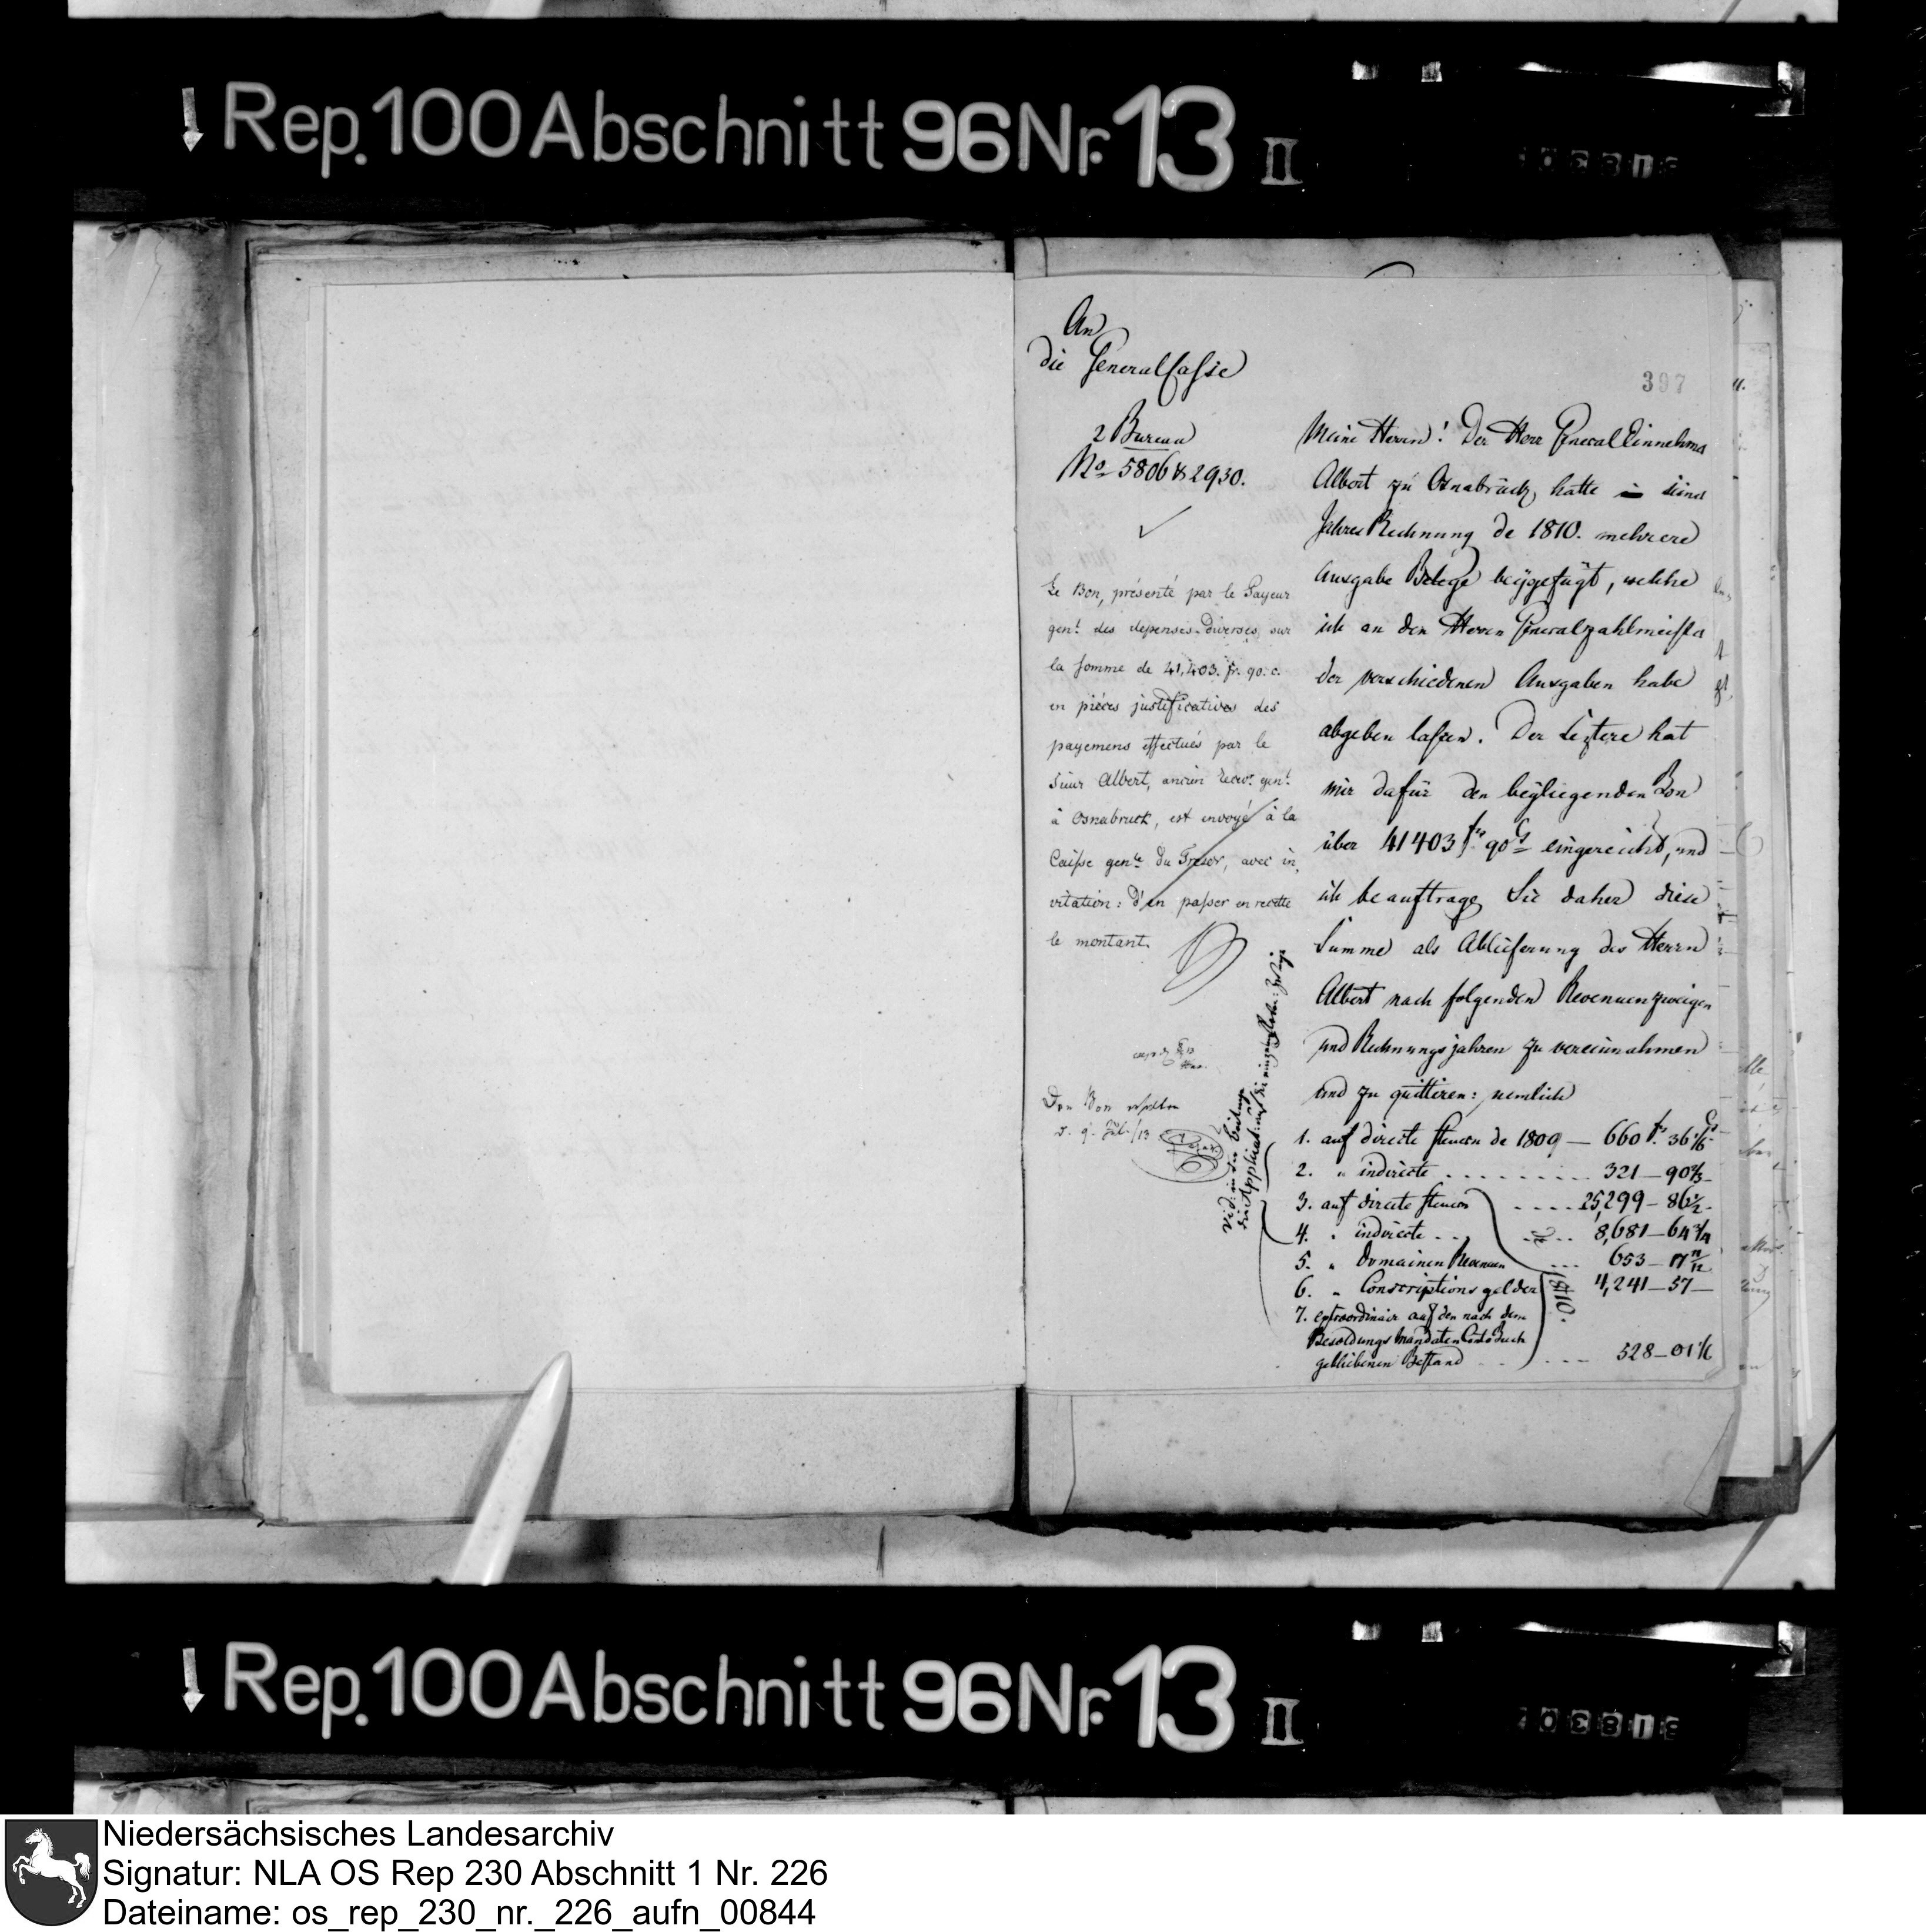 Rep. 100 Abschnitt 96 Nr. 13 II
An
die GeneralCasse
397
2 Bureau
No 5806 & 2930.
Le Bon, présenté par le Payeur
genl. des depenses diverses, sur
la somme de 41,403. fr. 90. c.
en pièces justificatives des
payemens effectués par le
Sieur Albert, ancien recevr. genl.
à Osnabruck, est envoyé à la
Caisse genle du Tresor, avec in,
vitation: d'en passer en recette
le montant.
Den Bon erhalten
d. 9. Jul. /13
Meine Herrn! Der Herr General Einnehmer
Albert zu Osnabrück, hatte in seiner
Jahres Rechnung de 1810. mehrere
Ausgabe Belege beygefügt, welche
ich an den Herrn Generalzahlmeister
der verschiedenen Ausgaben habe
abgeben lassen. Der Leztere hat
mir dafür den beyliegenden Bon
über 41403 frs 90 Cs eingereicht, und
ich beauftrage Sie daher diese
Summe als Ablieferung des Herrn
Albert nach folgenden Revenuenzweigen
und Rechnungsjahren zu vereinnahmen
und zu quittiren: nemlich
1. auf directe Steuern de 1809 — 660 fs. 36 1/6 Cs
2. " indirecte ......... 321 — 90 2/3
3. auf directe Steuern .... 25,299 — 86 1/2
4. " indirecte ... 8,681 — 64 3/4
5. " Domainen Revenuen ... 653 — 17 11/12
6. " Conscriptionsgelder 4,241 — 57 —
1810.
7. extraordinair auf den nach dem
Besoldungs Mandaten Conto Buch
gebliebenen Bestand .... 528 — 01 1/6
Rep. 100 Abschnitt 96 Nr. 13 II
Niedersächsisches Landesarchiv
Signatur: NLA OS Rep 230 Abschnitt 1 Nr. 226
Dateiname: os_rep_230_nr._226_aufn_00844